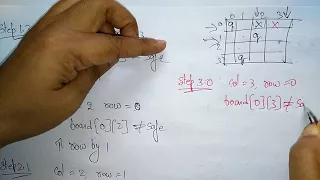 Step 1.
2 row = 0
board[0][2] ≠ safe
↑ row by 1
Step 2.1
col = 2, row = 1
0 1 2 3
q x x
q
q
Step 3.0 col = 3, row = 0
board[0][3] ≠ sa